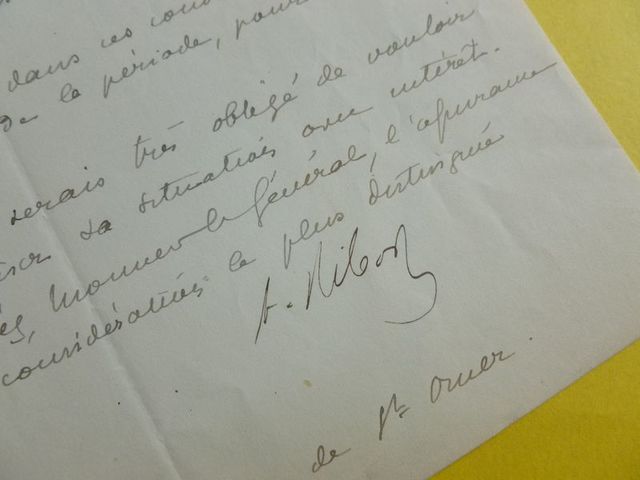 dans ces cond
de la période, pour
serais très obligé de vouloir
sa situation avec intérêt.
Monsieur le Général, l'assurance
considération la plus distinguée
A. Ribot
de St Omer.